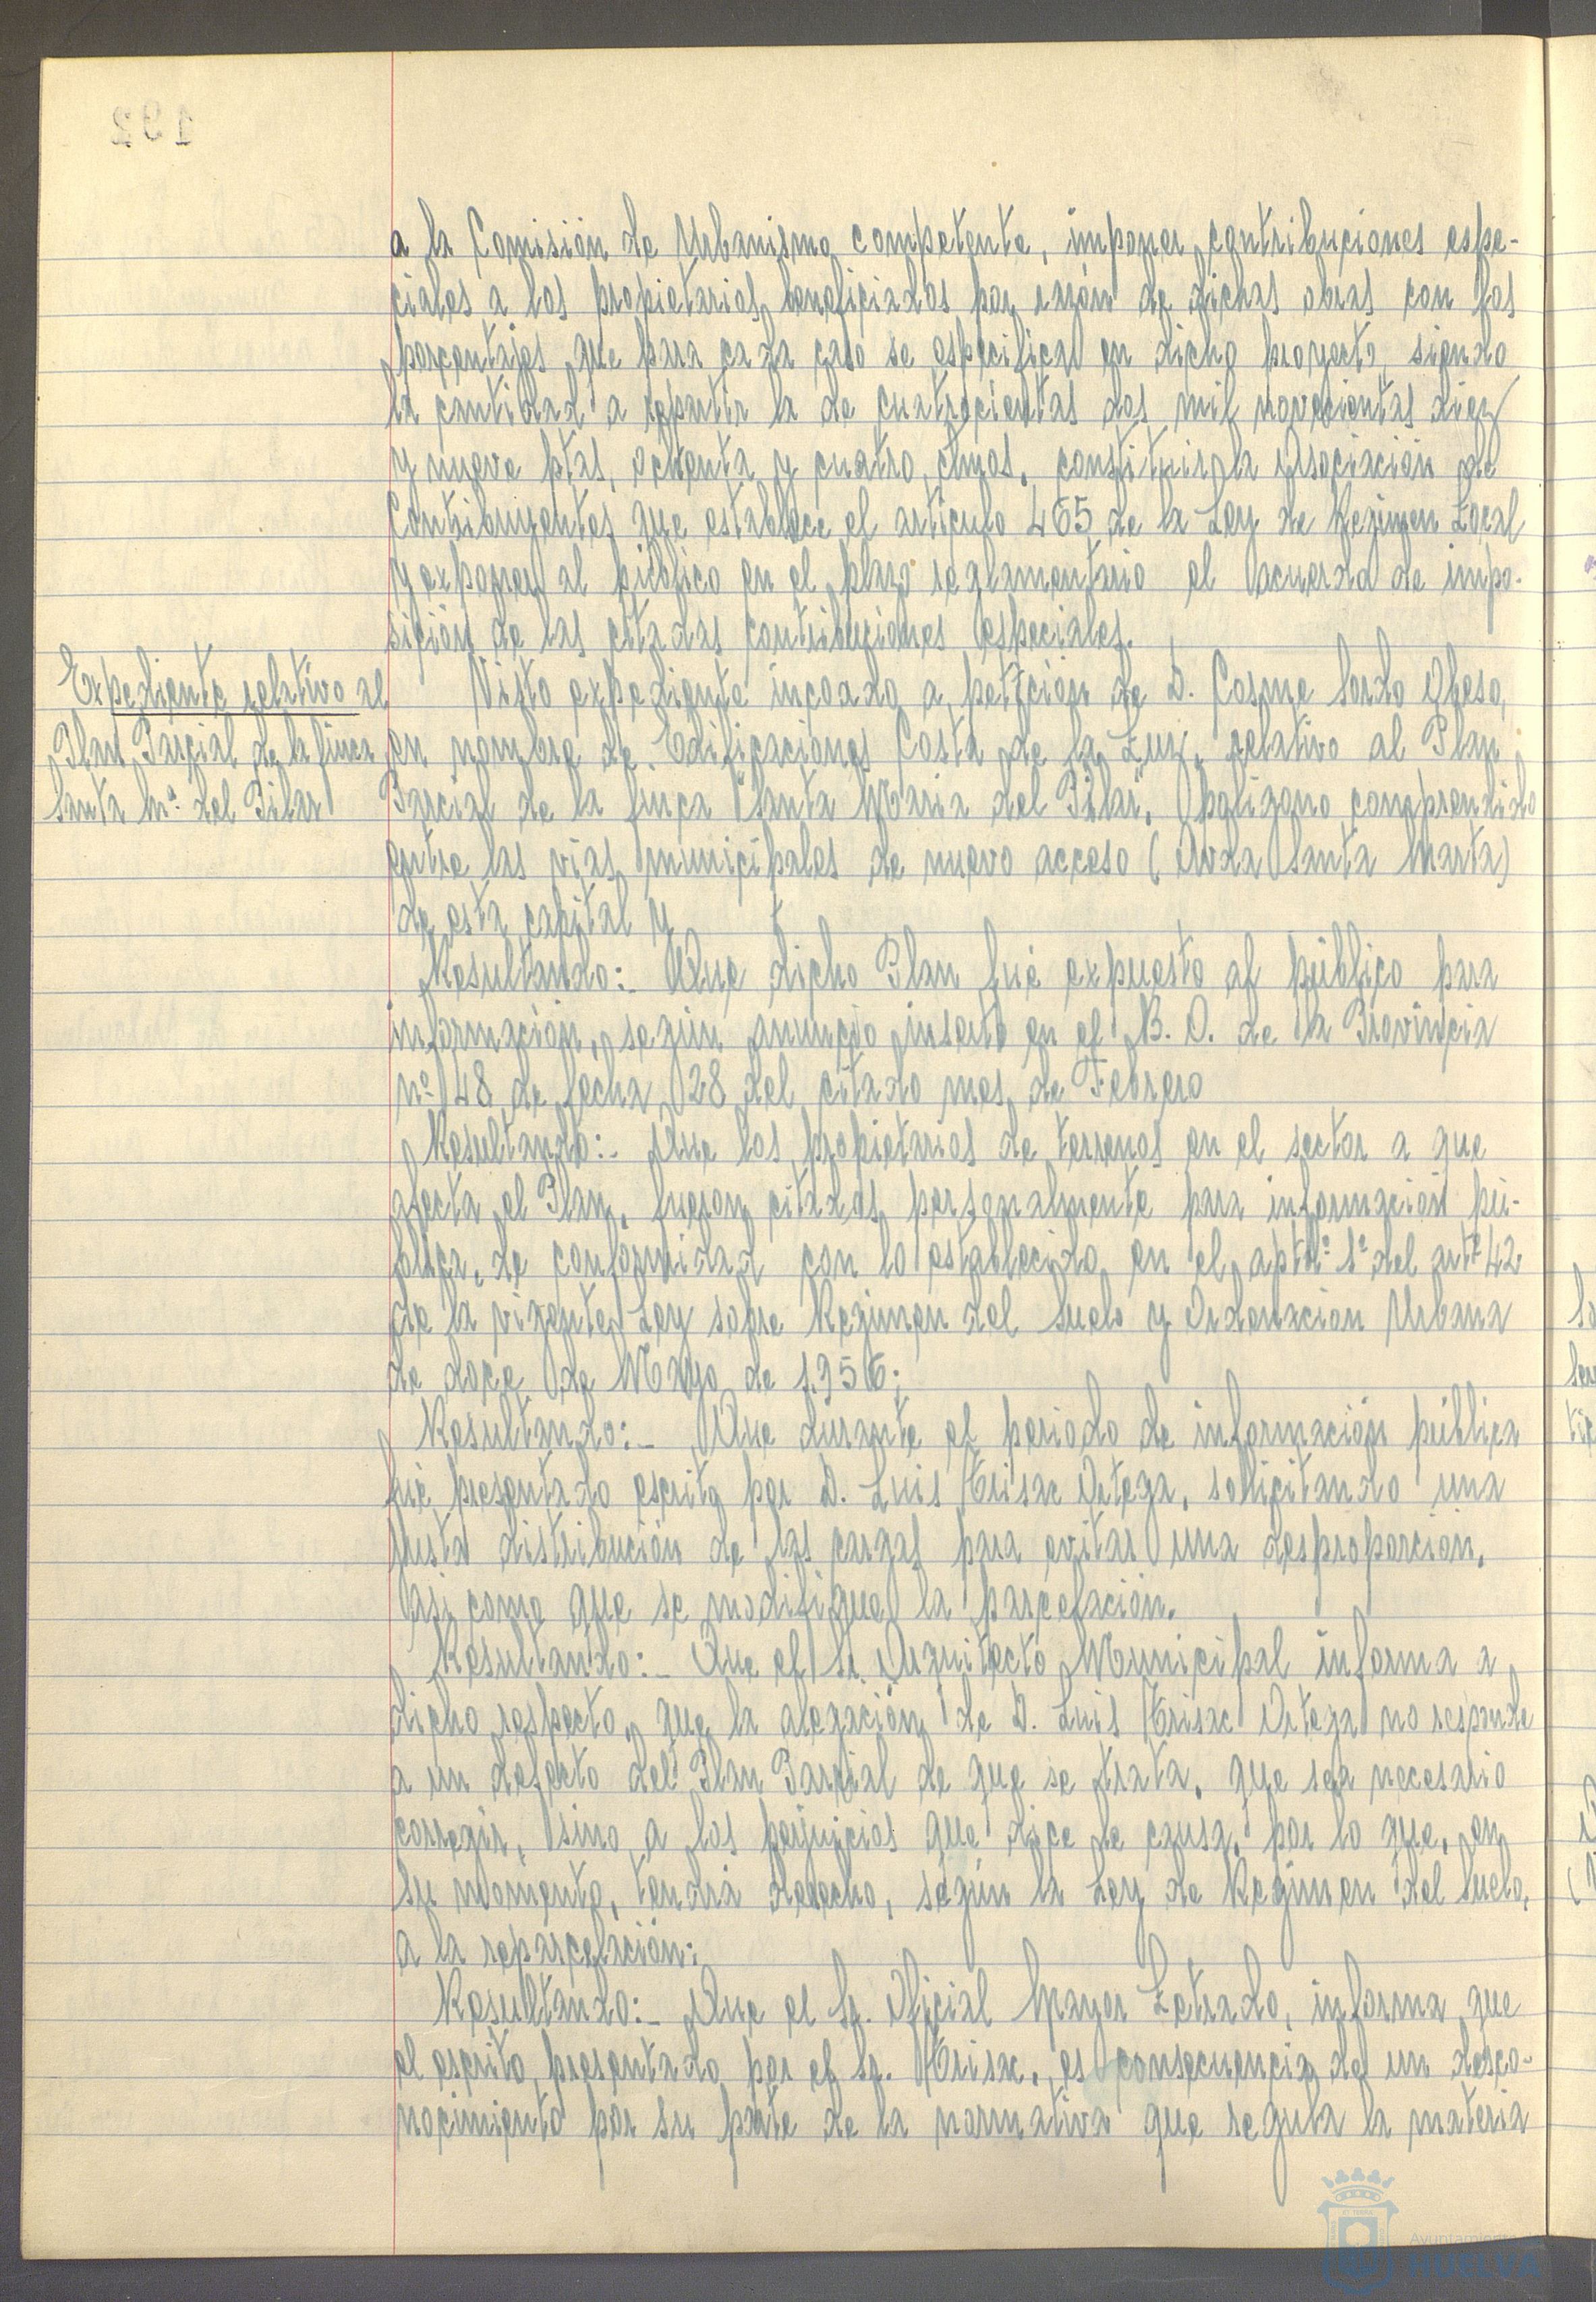 192
a la Comisión de Urbanismo competente, imponer contribuciones espe-
ciales a los propietarios beneficiados por razón de dichas obras con los
porcentajes que para cada caso se especifica en dicho proyecto siendo
la cantidad a repartir la de cuatrocientas dos mil novecientas diez
y nueve ptas, ochenta y cuatro ctmos, constituir la Asociación de
Contribuyentes que establece el artículo 465 de la Ley de Regimen Local
y exponer al público en el plazo reglamentario el acuerdo de impo-
sición de las citadas contribuciones especiales.
Expediente relativo al
Plan Parcial de la finca
Santa Mª del Pilar
Visto expediente incoado a petición de D. Cosme Sordo Obeso,
en nombre de Edificaciones Costa de la Luz, relativo al Plan
Parcial de la finca "Santa María del Pilar", (polígono comprendido
entre las vías municipales de nuevo acceso (Avda Santa Marta)
de esta capital y
Resultando:- Que dicho Plan fué expuesto al público para
información, según anuncio inserto en el B. O. de la Provincia
nº 48 de fecha 28 del citado mes de Febrero
Resultando:- Que los propietarios de terrenos en el sector a que
afecta el Plan, fueron citados personalmente para información pú-
blica, de conformidad con lo establecido en el aptdº 1º del artº 42
de la vigente Ley sobre Regimen del Suelo y Ordenación Urbana
de doce de Mayo de 1.956;
Resultando:- Que durante el periodo de información pública
fué presentado escrito por D. Luis Ortega, solicitando una
justa distribución de las cargas para evitar una desproporción,
así como que se modifique la parcelación.
Resultando:- Que el Sr. Arquitecto Municipal informa a
dicho respecto, que la alegación de D. Luis Ortega no responde
a un defecto del Plan Parcial de que se trata, que sea necesario
corregir, sino a los perjuicios que dice le causa, por lo que, en
su momento, tendrá derecho, según la Ley de Regimen del Suelo,
a la reparcelación;
Resultando:- Que el Sr. Oficial Mayor Letrado, informa que
el escrito presentado por el Sr. es consecuencia de un desco-
nocimiento por su parte de la normativa que regula la materia
Ayuntamiento
HUELVA